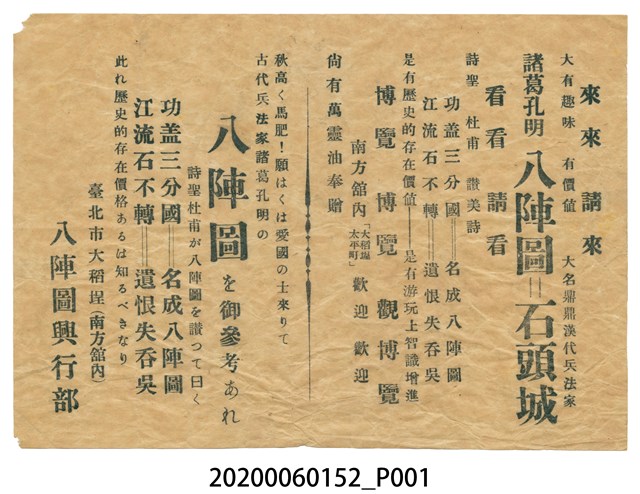 來來 請來
大有趣味 有價値 大名鼎鼎漢代兵法家
諸葛孔明 八陣圖＝石頭城
看看 請看
詩聖 杜甫 讚美詩
功蓋三分國＝名成八陣圖
江流石不轉＝遺恨失吞吳
是有歷史的存在價値──是有游玩上智識增進
博覽 博覽 觀博覽
南方舘內「大稻埕太平町」歡迎 歡迎
尙有萬靈油奉贈
秋高く馬肥！願はくは愛國の士來りて
古代兵法家諸葛孔明の
八陣圖を御參考あれ
詩聖杜甫が八陣圖を讃つて曰く
功蓋三分國＝名成八陣圖
江流石不轉＝遺恨失吞吳
此れ歷史的存在價格あるは知るべきなり
臺北市大稻埕（南方舘內）
八陣圖興行部
20200060152_P001